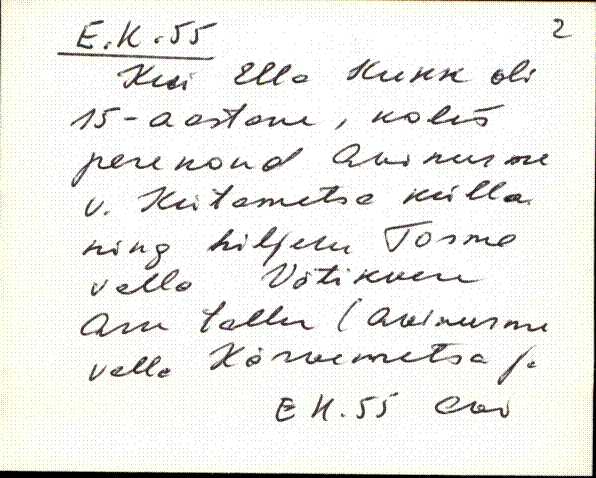 E.K.55
2
Kui Ella Kukk oli
15-aastane, kolis
perekond Avinurme
v. Kiitametsa külla
ning hiljem Torma
valla Võtikvere
Aru tallu (Avinurme
valla Kõrvemetsa ja
EK.55